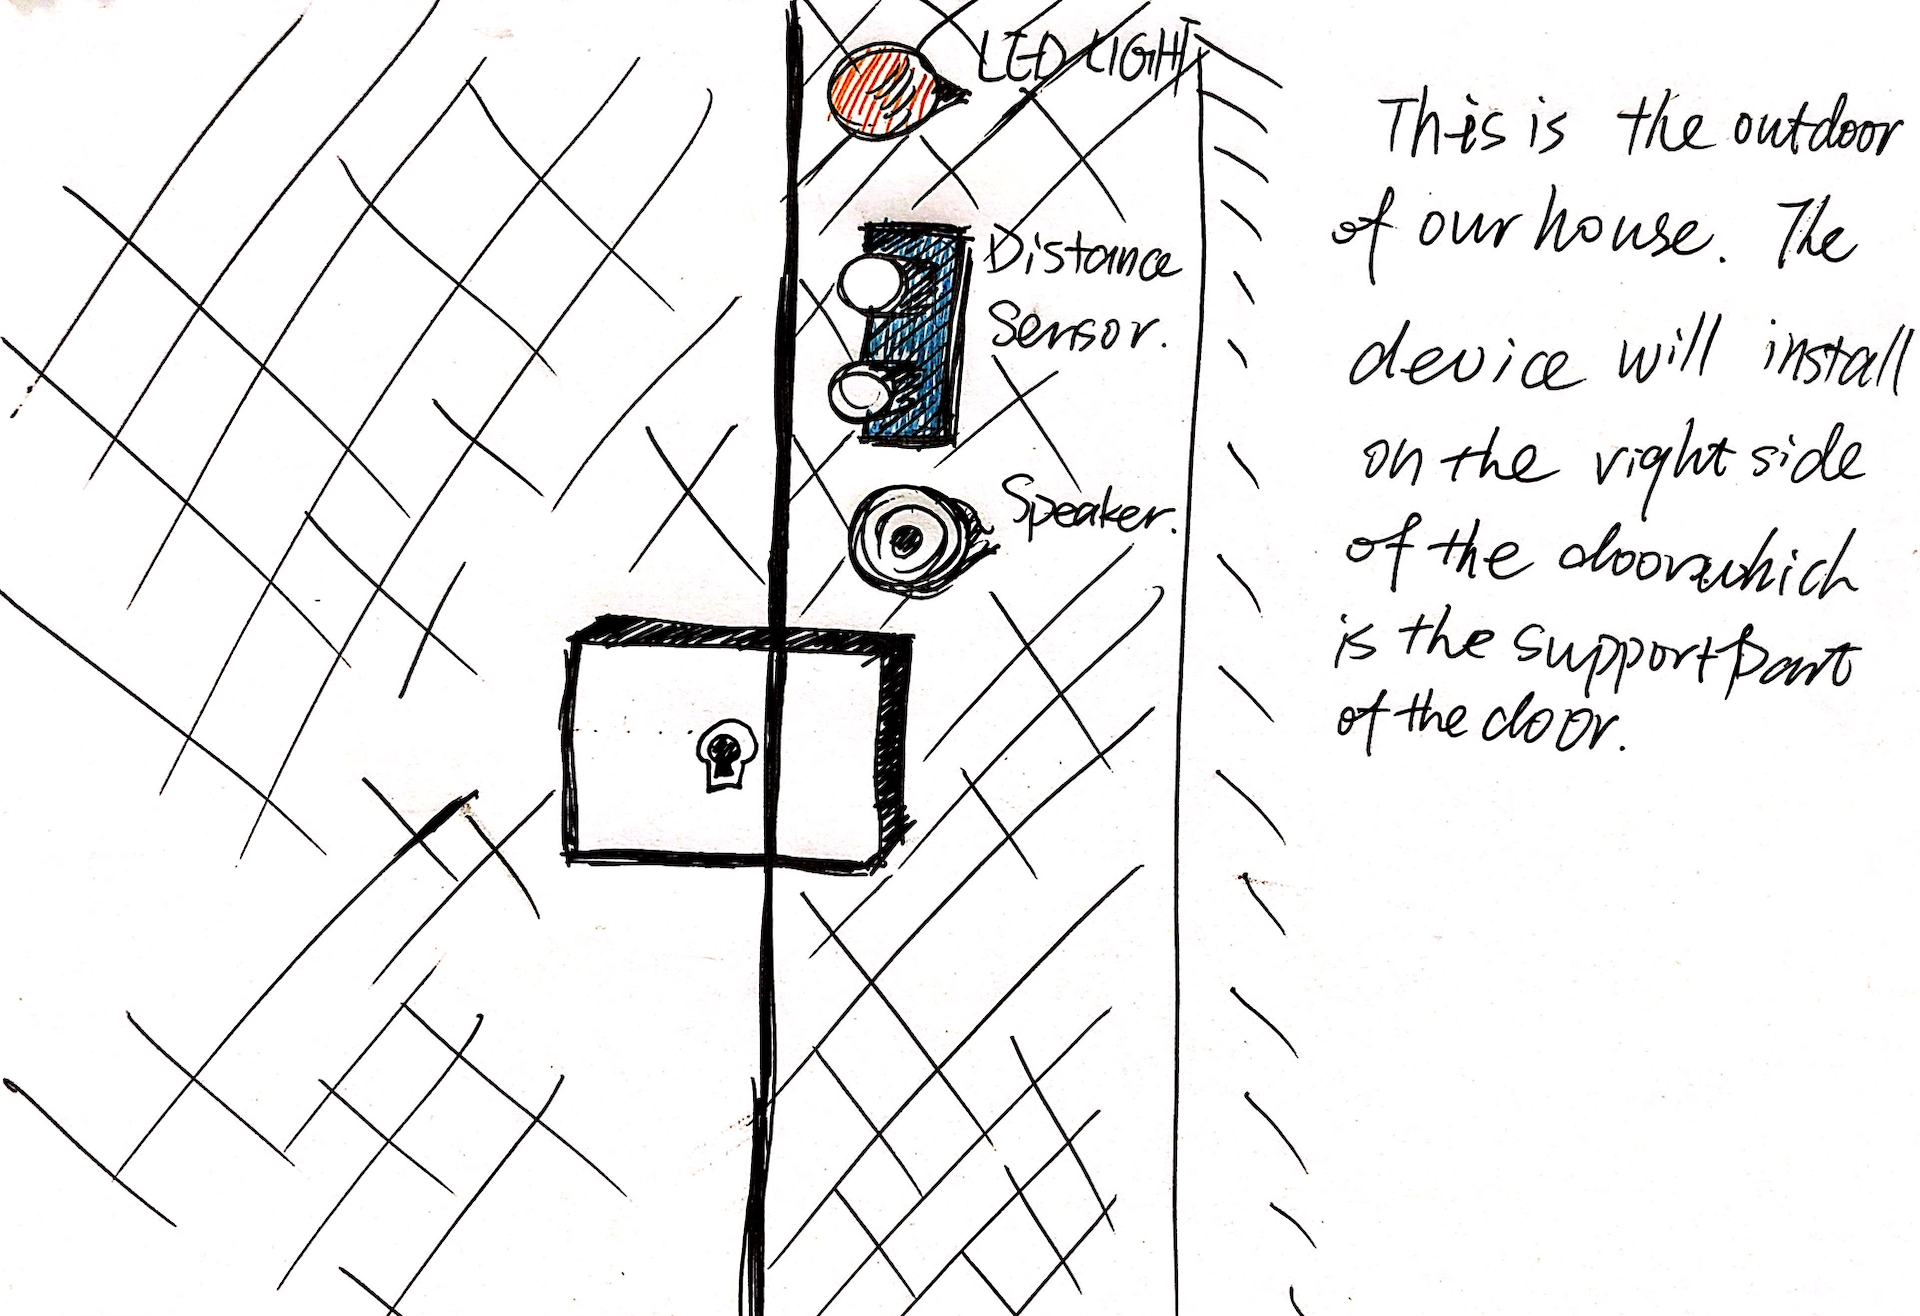 LED LIGHT
Distance
Sensor.
Speaker.
This is the outdoor
of our house. The
device will install
on the right side
of the door which
is the support part
of the door.